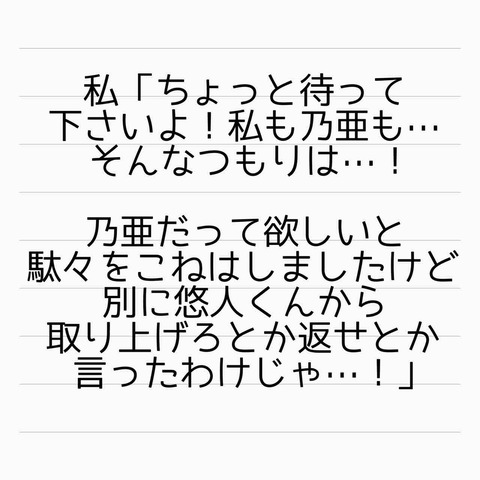 私「ちょっと待って
下さいよ！私も乃亜も…
そんなつもりは…！
乃亜だって欲しいと
駄々をこねはしましたけど
別に悠人くんから
取り上げろとか返せとか
言ったわけじゃ…！」